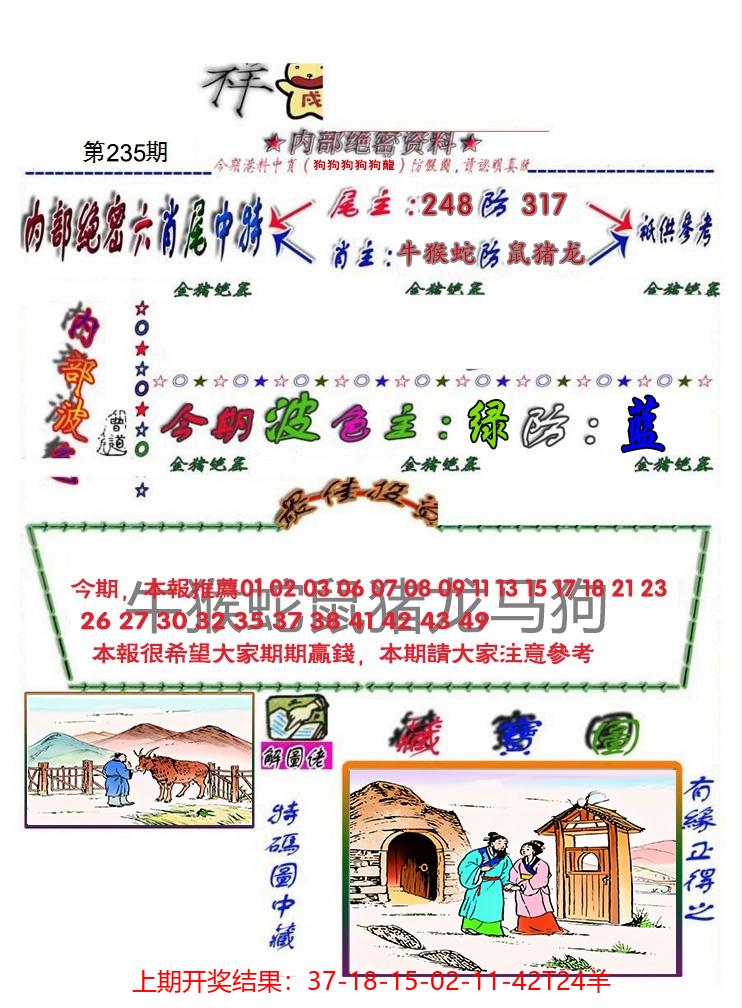 祥
戌
第235期
★内部绝密资料★
今期港料中肖（狗狗狗狗狗龍）防假圖,請認明真版
内部绝密六肖尾中特
尾主:248防 317
肖主:牛猴蛇防鼠猪龙
祗供參考
金猪绝密 金猪绝密 金猪绝密
内部波
曾道
今期波色主:绿防:蓝
金猪绝密 金猪绝密 金猪绝密
最佳投
牛猴蛇鼠猪龙马狗
今期，本報推薦01 02 03 06 07 08 09 11 13 15 17 18 21 23
26 27 30 32 35 37 38 41 42 43 49
本報很希望大家期期贏錢，本期請大家注意參考
解圖佬
藏寶圖
特碼圖中藏
有緣正得之
上期开奖结果：37-18-15-02-11-42T24羊